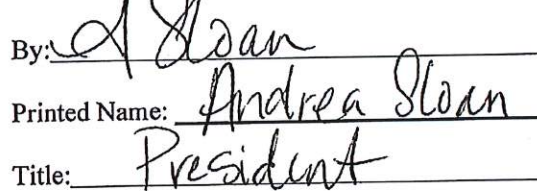 By: A Sloan
Printed Name: Andrea Sloan
Title: President